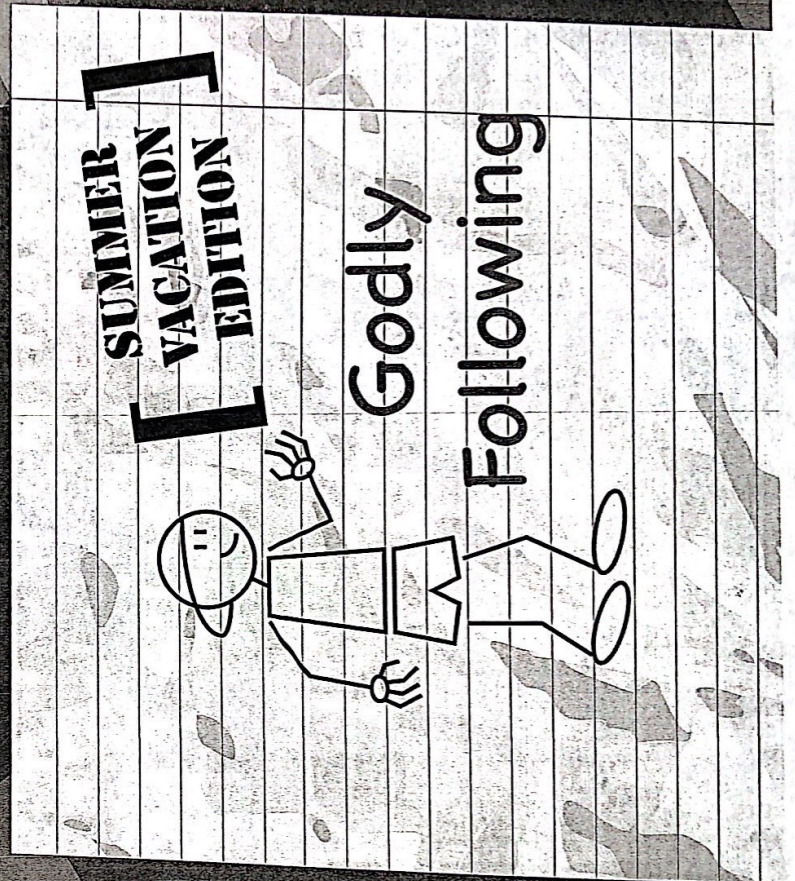 [SUMMER
VACATION
EDITION]
Godly
Following